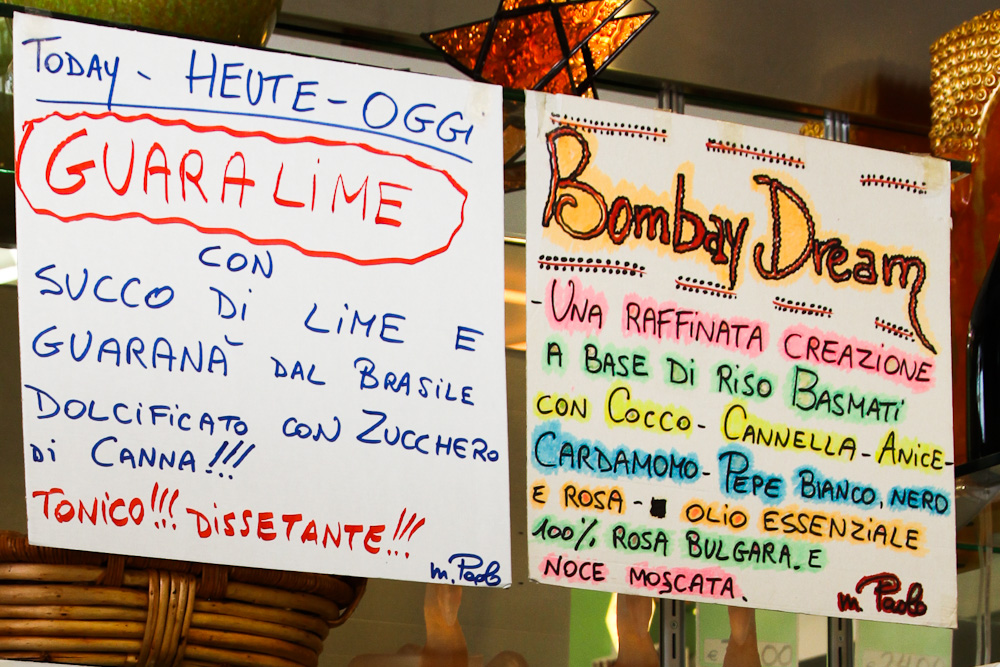 TODAY - HEUTE - OGGI
GUARALiME
CON
SUCCO Di LiME E
GUARANÀ DAL BRASILE
DOLCiFiCATO CON ZUCCHERO
Di CANNA!!!
TONiCO!!! DiSSETANTE!!!
m. Paolo
Bombay Dream
- UNA RAFFiNATA CREAZiONE
A BASE Di RiSO BASMATi
CON COCCO - CANNELLA - ANiCE -
CARDAMOMO - PEPE BiANCO, NERO
E ROSA - OLiO ESSENZiALE
100% ROSA BULGARA. E
NOCE MOSCATA.
m. Paolo